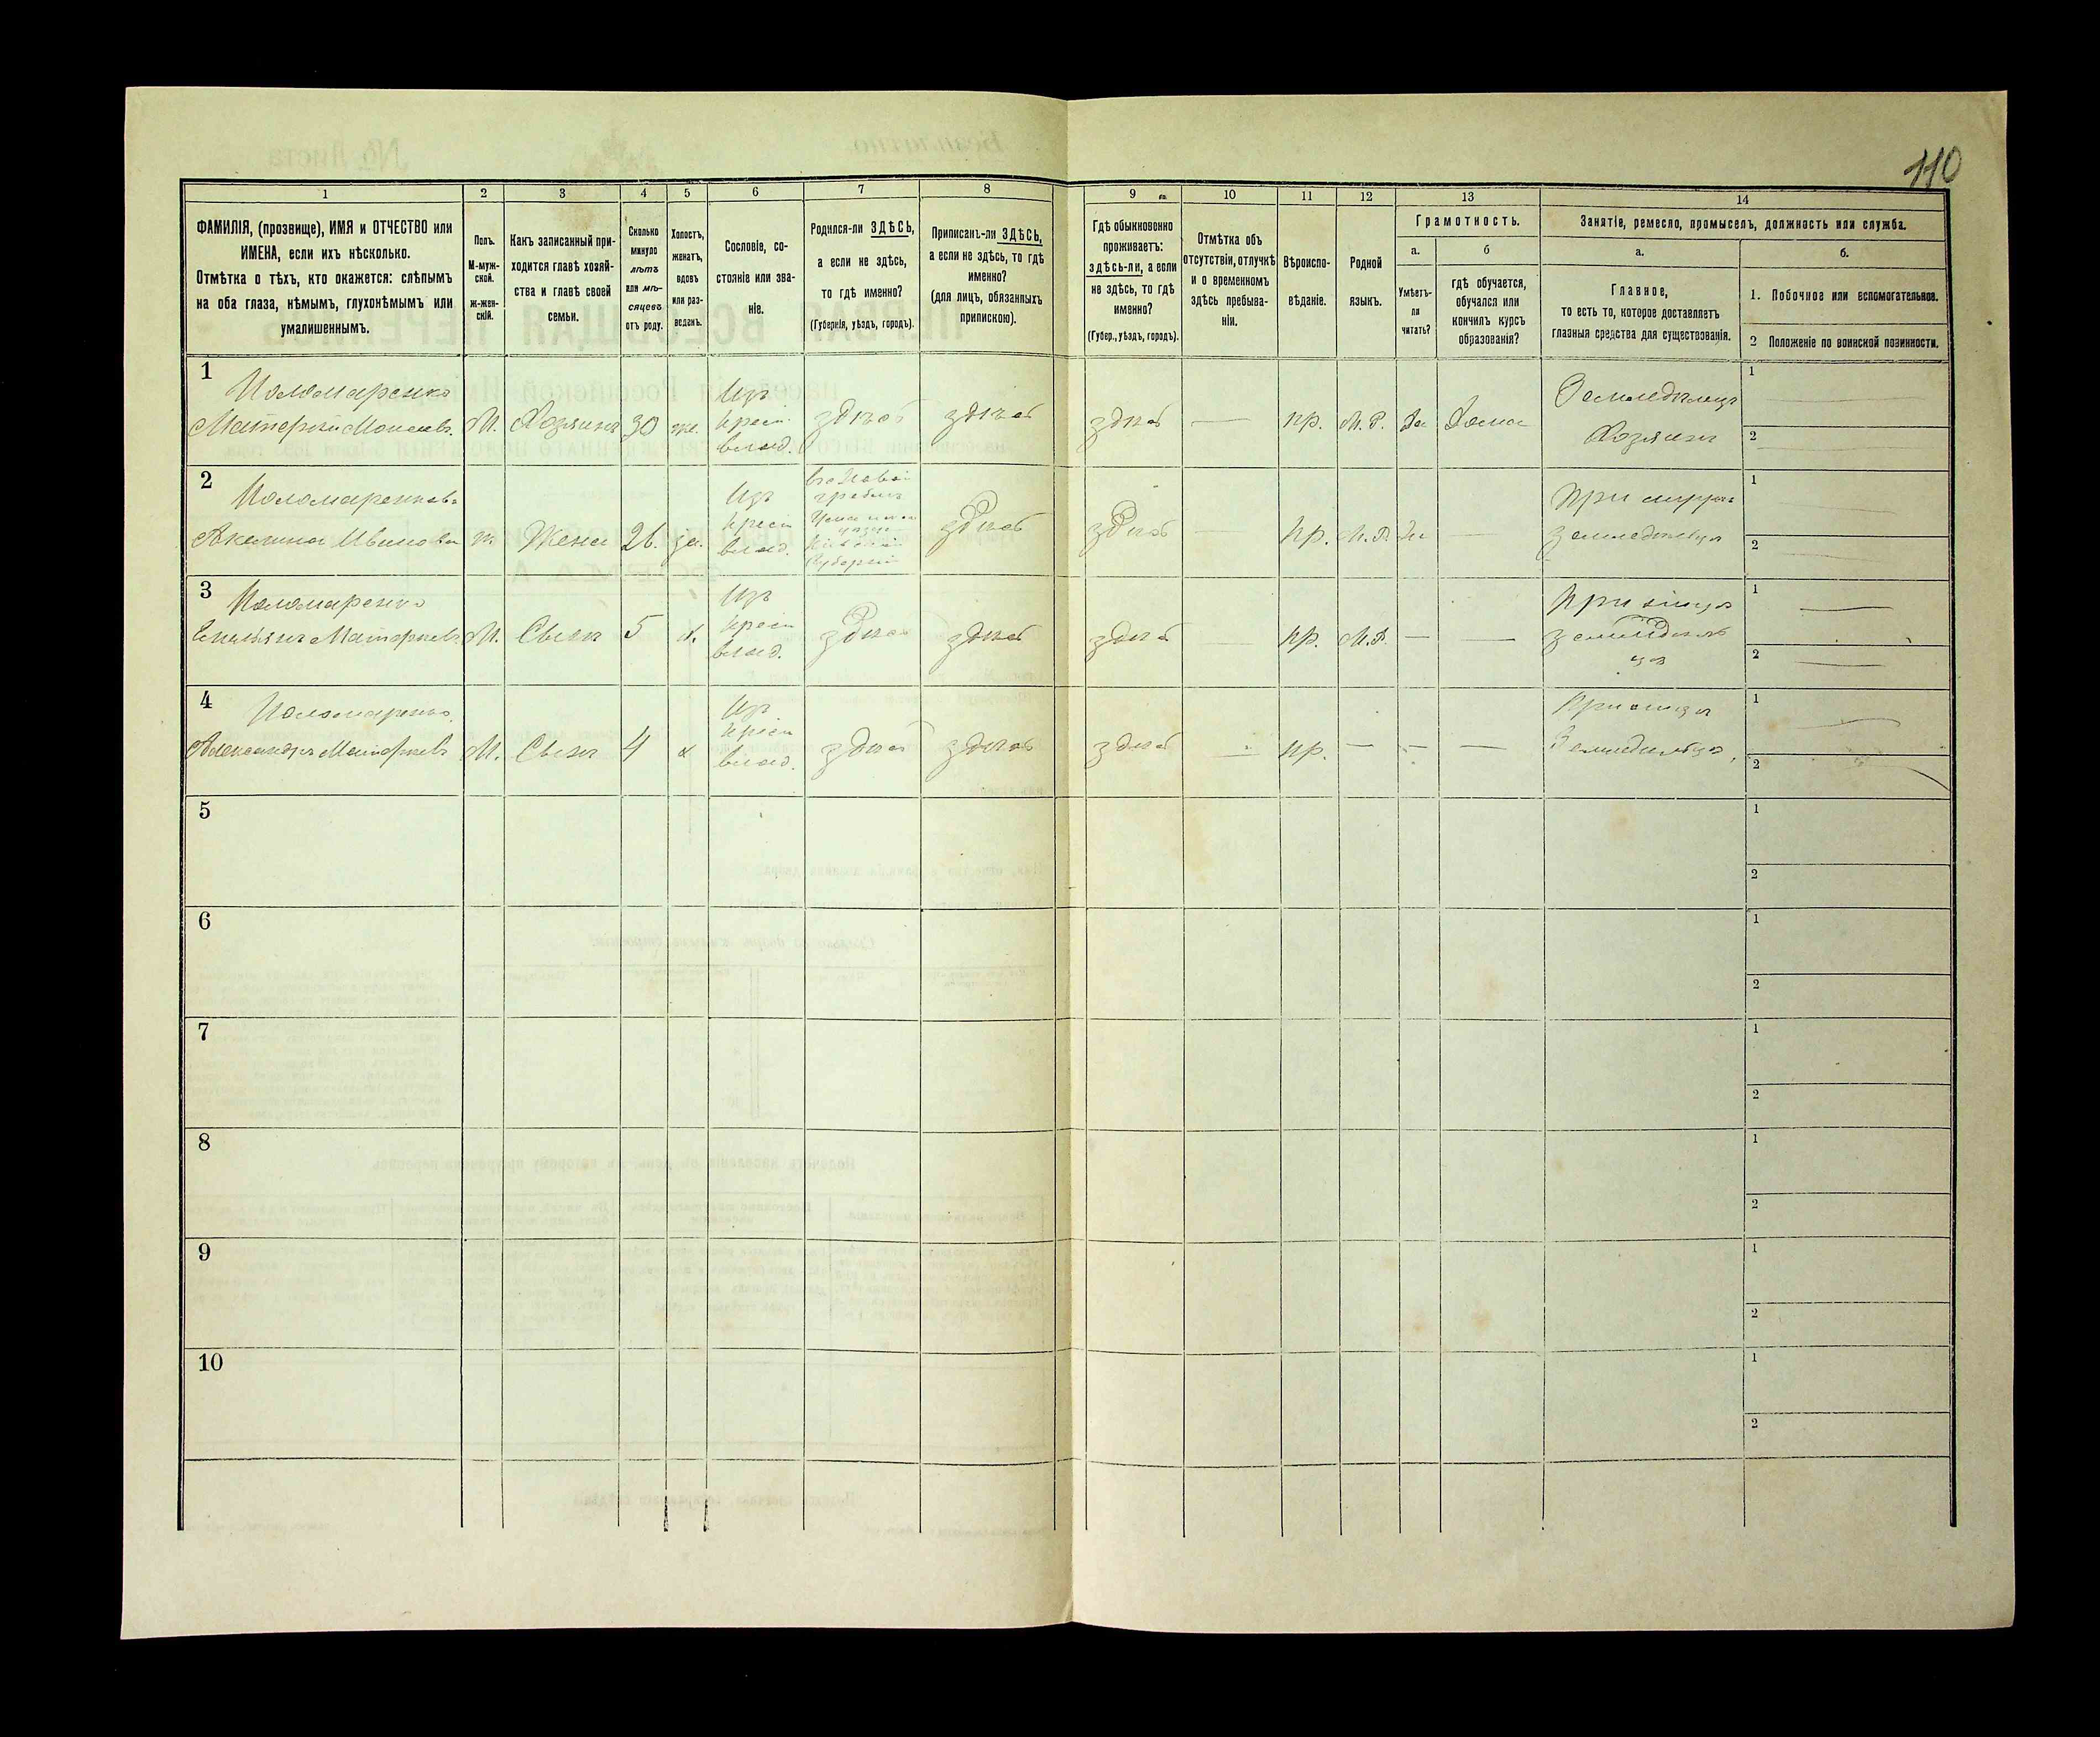 110
1 2 3 4 5 6 7 8 9 10 11 12 13 14
ФАМИЛІЯ, (прозвище), ИМЯ и ОТЧЕСТВО или
ИМЕНА, если ихъ нѣсколько.
Отмѣтка о тѣхъ, кто окажется: слѣпымъ
на оба глаза, нѣмымъ, глухонѣмымъ или
умалишеннымъ.
Полъ.
М-муж-
ской.
ж-жен-
скій.
Какъ записанный при-
ходится главѣ хозяй-
ства и главѣ своей
семьи.
Сколько
минуло
лѣтъ
или мѣ-
сяцевъ
отъ роду.
Холостъ,
женатъ,
вдовъ
или раз-
веденъ.
Сословіе, со-
стояніе или зва-
ніе.
Родился-ли ЗДѢСЬ,
а если не здѣсь,
то гдѣ именно?
(Губернія, уѣздъ, городъ).
Приписанъ-ли ЗДѢСЬ,
а если не здѣсь, то гдѣ
именно?
(для лицъ, обязанныхъ
припискою).
Гдѣ обыкновенно
проживаетъ:
здѣсь-ли, а если
не здѣсь, то гдѣ
именно?
(Губер., уѣздъ, городъ).
Отмѣтка объ
отсутствіи, отлучкѣ
и о временномъ
здѣсь пребыва-
ніи.
Вѣроиспо-
вѣданіе.
Родной
языкъ.
Грамотность.
а.
Умѣетъ-
ли
читать?
б
гдѣ обучается,
обучался или
кончилъ курсъ
образованія?
Занятіе, ремесло, промыселъ, должность или служба.
а.
Главное,
то есть то, которое доставляетъ
главныя средства для существованія.
б.
1. Побочное или вспомогательное.
2 Положеніе по воинской повинности.
1
Пономаренко
М. Хозяинъ 30 же. Изъ крест. влад. здѣсь здѣсь здѣсь — пр. М. Р. Да Дома Земледѣлецъ
Хозяинъ
1
2
2
Пономаренкова
Акелина Иванова ж. Жена 26. за. Изъ крест. влад.
губерніи
здѣсь здѣсь — пр. М. Р. —
При
земледѣльца
1
2
3
Пономаренко
М. Сынъ 5 х. Изъ крест. влад. здѣсь здѣсь здѣсь — пр. М. Р. — —
При отцѣ
1
2
4
Пономаренко
Александръ М. Сынъ 4 х Изъ крест. влад. здѣсь здѣсь здѣсь — пр. — — —
При отцѣ
1
2
5
1
2
6
1
2
7
1
2
8
1
2
9
1
2
10
1
2